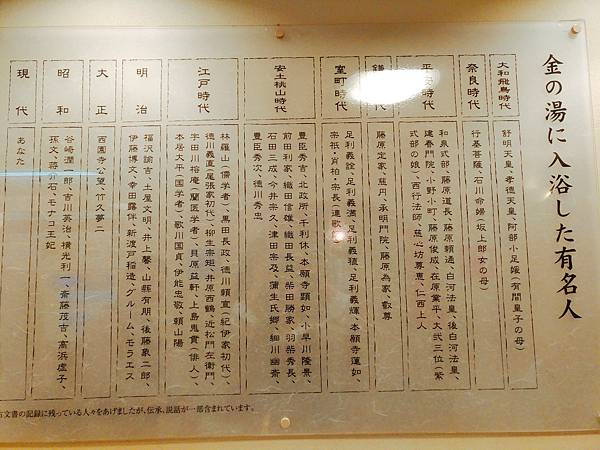 金の湯に入浴した有名人
大和飛鳥時代
舒明天皇、孝德天皇、阿部小足媛(有間皇子の母)
奈良時代
行基菩薩、石川命婦(坂上郎女の母)
平安時代
和泉式部、藤原道長、藤原頼通、白河法皇、後白河法皇、
建春門院、小野小町、藤原俊成、在原業平、大弐三位(紫
式部の娘)、西行法師、慈心坊尊恵、仁西上人
鎌
藤原定家、慈円、承明門院、藤原為家、叡尊
室町時代
足利義詮、足利義満、足利義稙、足利義輝、本願寺蓮如、
宗祇・肖柏・宗長(連歌
安土桃山時代
豊臣秀吉、北政所、千利休、本願寺顕如、小早川隆景、
前田利家、織田信雄、織田長益、柴田勝家、羽柴秀長、
石田三成、今井宗久、津田宗及、蒲生氏郷、細川幽斎、
豊臣秀次、徳川秀忠
江戸時代
林羅山(儒学者)、黒田長政、徳川頼宣(紀伊家初代)、
徳川義直(尾張家初代)、柳生宗矩、井原西鶴、近松門左衛門、
宇田川榕庵(蘭医学者)、貝原益軒、上島鬼貫(俳人)、
本居大平(国学者)、歌川国貞、伊能忠敬、頼山陽
明治
福沢諭吉、土屋文明、井上馨、山縣有朋、後藤象二郎、
伊藤博文、幸田露伴、新渡戸稲造、グルーム、モラエス
大正
西園寺公望、竹久夢二
昭和
谷崎潤一郎、吉川英治、横光利一、斎藤茂吉、高浜虚子、
孫文、蒋介石、モナコ王妃
現代
あなた
古文書の記録に残っている人々をあげましたが、伝承、説話が一部含まれています。